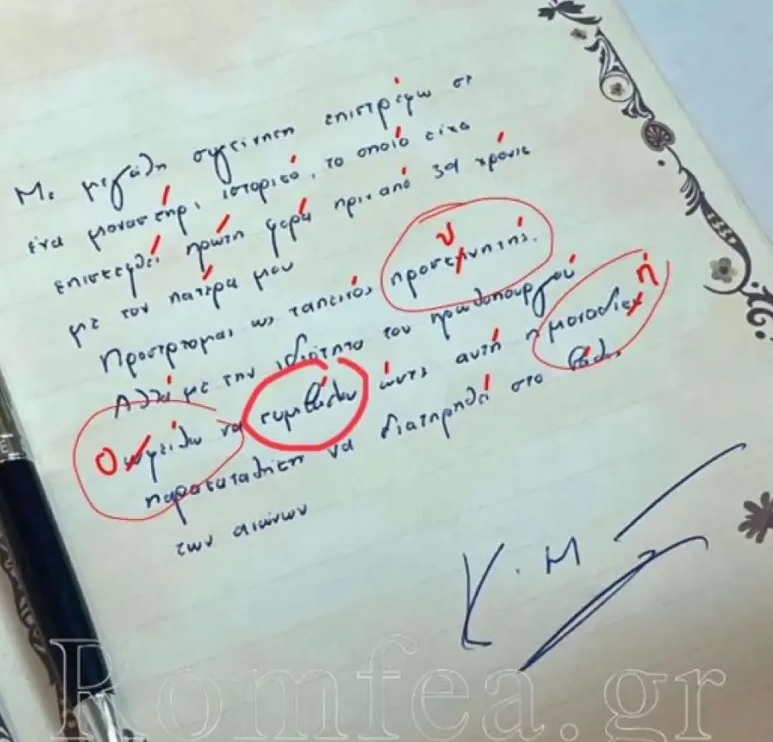 Με μεγάλη συγκίνηση επιστρέφω σε
ένα μοναστήρι ιστορικό, το οποίο είχα
επισκεφθεί πρώτη φορά πριν από 39 χρόνια
με τον πατέρα μου
υ
Προσέρχομαι ως ταπεινός προσκηνητής.
Αλλά με την ιδιότητα του πρωθυπουργού
ή
Ο ωφείλω να συμβάλω ώστε αυτή η μοναδική
παρακαταθήκη να διατηρηθεί στο βάθος
των αιώνων
Κ. Μ
Romfea.gr